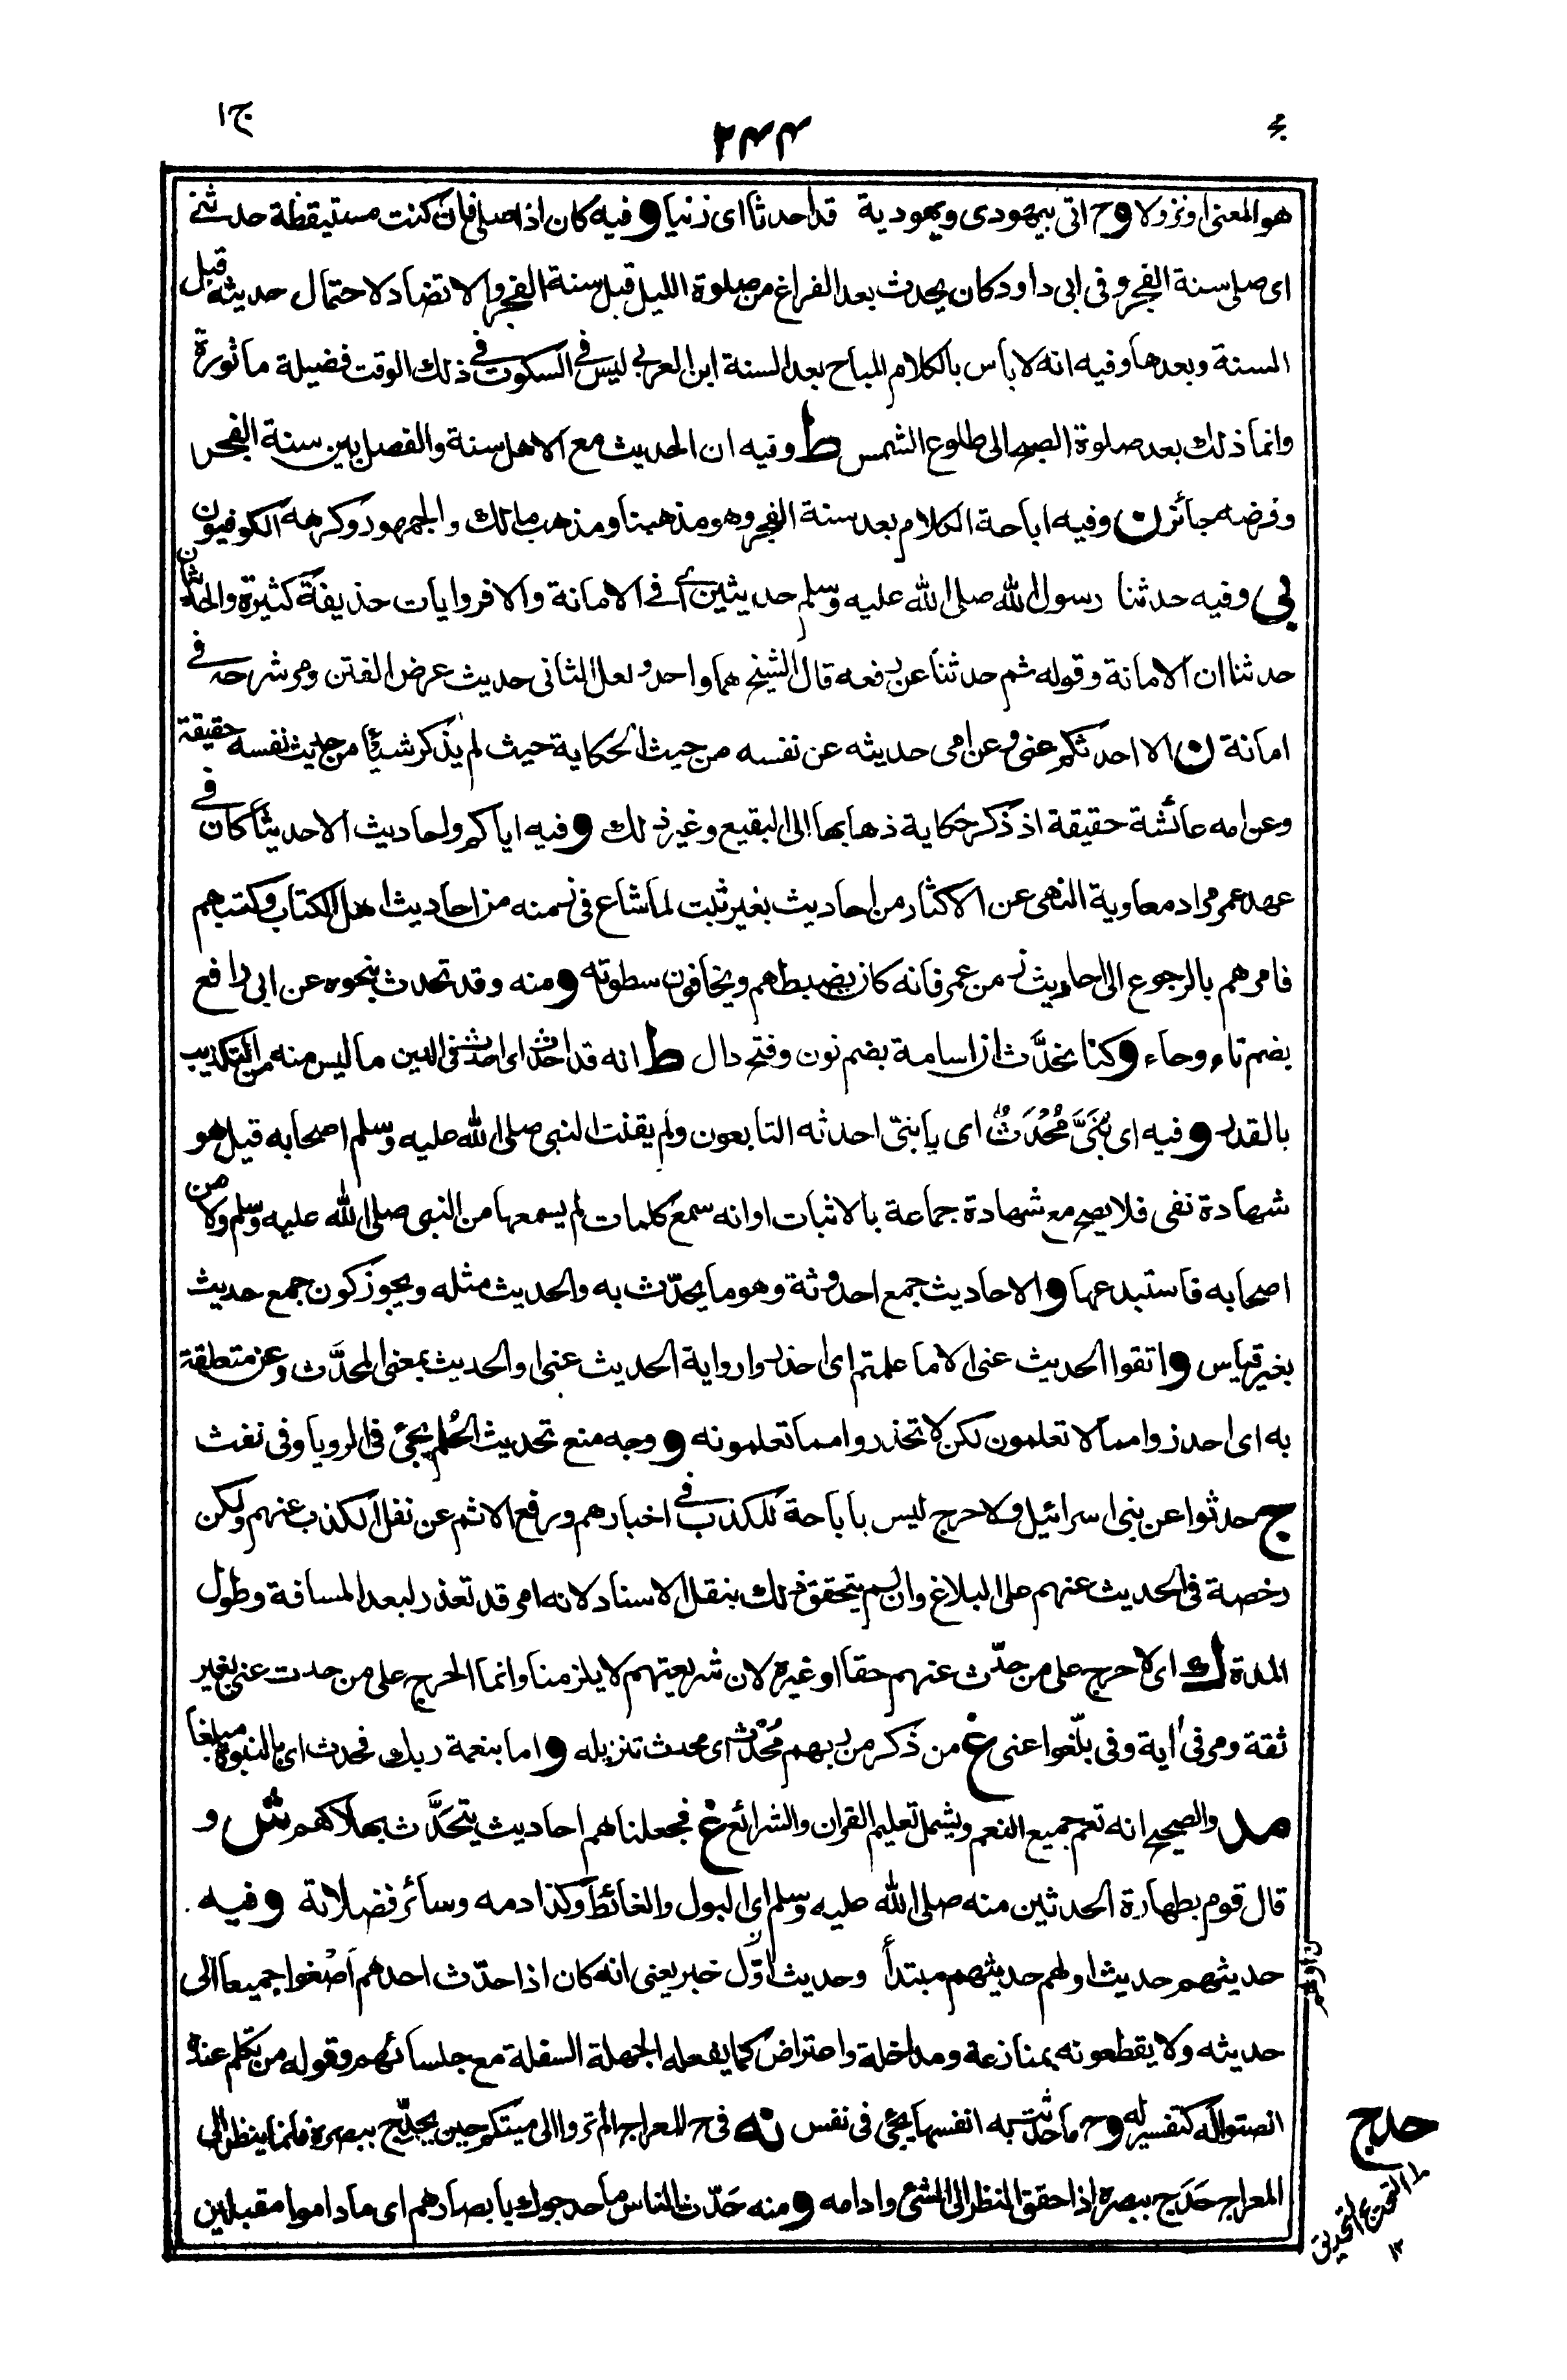 ج ١
٢٤٤
هو المعنى او نزولا وح اتى بيهودى ويهودية قد احدثا اى زنيا و فيه كان اذا صلى فان كنت مستيقظة حدثنى
اى صلى سنة الفجر وفى ابى داود كان يحدث بعد الفراغ من صلوة الليل قبل سنة الفجر ولا تضاد لاحتمال حديثه قبل
السنة وبعدها وفيه انه لا باس بالكلام المباح بعد السنة ابن العربى ليس فى السكوت فى ذلك الوقت فضيلة ماثورة
وانما ذلك بعد صلوة الصبح الى طلوع الشمس ط وفيه ان الحديث مع الاهل سنة والفصل بين سنة الفجر
وفرضه جائز ن وفيه اباحة الكلام بعد سنة الفجر وهو مذهبنا ومذهب مالك والجمهور وكرهه الكوفيون
بى وفيه حدثنا رسول الله صلى الله عليه وسلم حديثين اى فى الامانة والا فروايات حذيفة كثيرة والحديثان
حدثنا ان الامانة وقوله ثم حدثنا عن رفعه قال الشيخ هما واحد ولعل الثانى حديث عرض الفتن ومر شرحه فى
امانة ن الا احدثكم عنى وعن امى حديثه عن نفسه من حيث الحكاية حيث لم يذكر شيئا من حديث نفسه حقيقة
وعن امه عائشة حقيقة اذ ذكر حكاية ذهابها الى البقيع وغير ذلك و فيه اياكم واحاديث الا حديثا كان فى
عهد عمر مراد معاوية النهى عن الاكثار من احاديث بغير ثبت لما شاع فى زمنه من احاديث اهل الكتاب وكتبهم
فامرهم بالرجوع الى احاديث زمن عمر فانه كان يضبطهم ويخافون سطوته و منه وقد تحدث بنحوه عن ابى رافع
بضم تاء وحاء و كنا نحدَّث ان اسامة بضم نون وفتح دال ط انه قد احدث اى احدث فى الدين ما ليس منه من التكذيب
بالقدر و فيه اى بُنَىَّ مُحْدَثٌ اى يا بنىّ احدثه التابعون ولم يقنت النبى صلى الله عليه وسلم اصحابه قيل هو
شهادة نفى فلا يصح مع شهادة جماعة بالاثبات او انه سمع كلمات لم يسمعها من النبى صلى الله عليه وسلم ولا من
اصحابه فاستبدعها و الاحاديث جمع احدوثة وهو ما يحدّث به والحديث مثله ويجوز كون جمع حديث
بغير قياس و اتقوا الحديث عنى الا ما علمتم اى احذروا رواية الحديث عنى او الحديث بمعنى المحدَّث وعن متعلقة
به اى احذروا مما لا تعلمون لكن لا تحذروا مما تعلمونه و وجه منع تحديث الحُلم يجئ فى الرويا وفى نفث
ج حدثوا عن بنى اسرائيل ولا حرج ليس باباحة للكذب فى اخبارهم ورفع الاثم عن نقل الكذب عنهم ولكن
رخصة فى الحديث عنهم على البلاغ وان لم يتحقق ذلك بنقل الاسناد لانه امر قد تعذر لبعد المسافة وطول
المدة ك اى لا حرج على من حدّث عنهم حقا او غيره لان شريعتهم لا يلزمنا وانما الحرج على من حدث عنى بغير
ثقة ومر فى اٰية وفى بلّغوا عنى غ من ذكر من ربهم مُحْدَث اى محدث تنزيله و اما بنعمة ربك فحدث اى بالنبوة مبلغا
مد والصحيح انه تعم جميع النعم ويشمل تعليم القران والشرائع غ فجعلناهم احاديث يتحَدَّث بهلاكهم ش و
قال قوم بطهارة الحدثين منه صلى الله عليه وسلم اى البول والغائط وكذا دمه وسائر فضلاته و فيه
حديثهم حديث اولهم حديثهم مبتدأ وحديث اوّل خبر يعنى انه كان اذا حدّث احدهم اَصْغوا جميعا الى
حديثه ولا يقطعونه بمنازعة ومداخلة واعتراض كما يفعله الجهلة السفلة مع جلسائهم وقوله من تكلم عنده
انصتوا له كتفسير له وح ما حدثت به انفسها يجئ فى نفس نه فى ح المعراج الم تروا الى ميتكم حين يحدّج ببصره فانما ينظر الى
المعراج حَدَج ببصره اذا حقق النظر الى الشئ وادامه و منه حَدّث الناس ما حدجوك بابصارهم اى ما داموا مقبلين
حدج